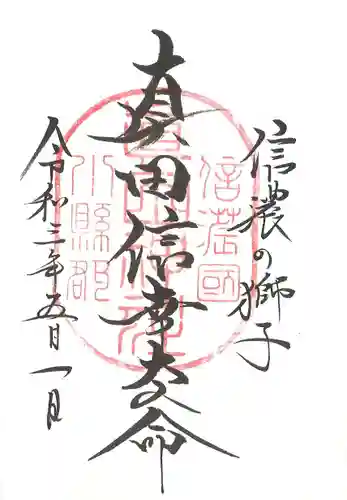 信濃の獅子
真田信幸大命
令和三年五月一日
信濃國
小縣郡